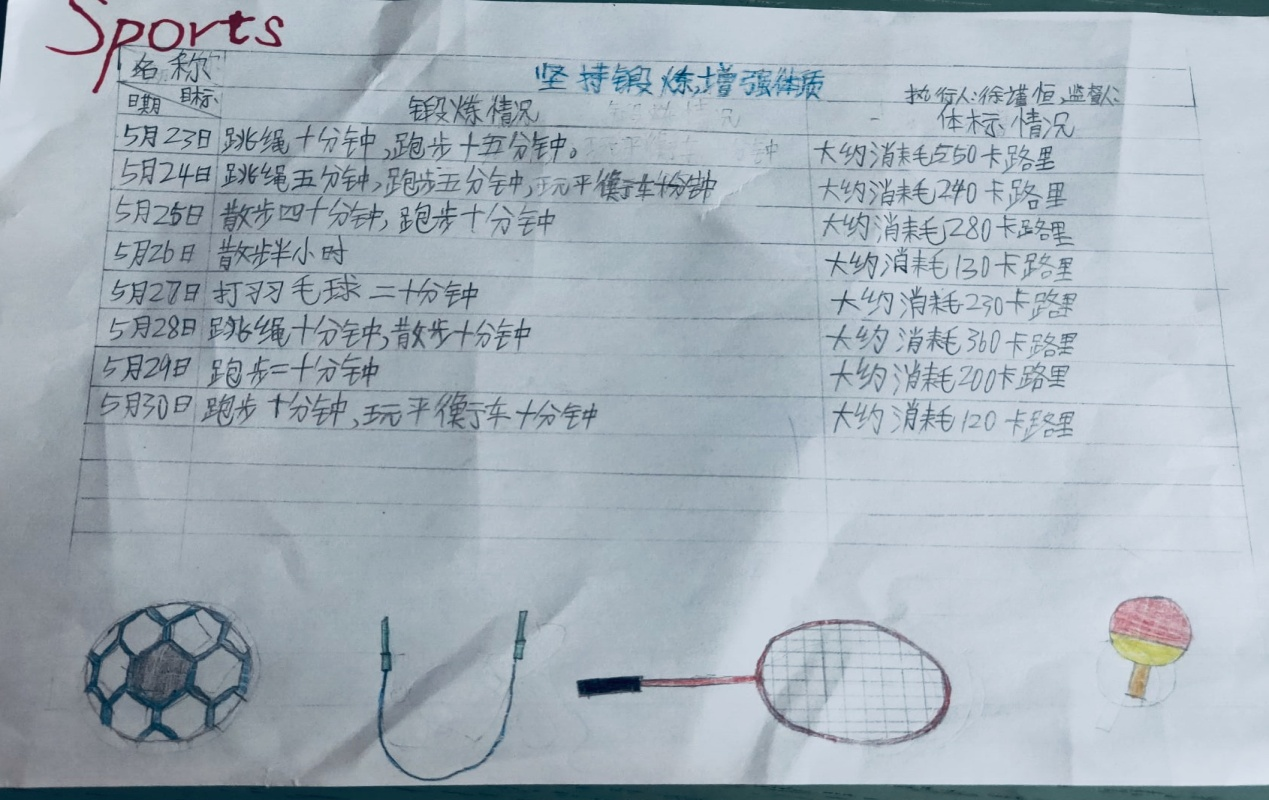 Sports
名称 坚持锻炼,增强体质
目标 日期 锻炼情况 执行人:徐谨恒,监督人:
体标情况
5月23日 跳绳十分钟,跑步十五分钟。 大约消耗550卡路里
5月24日 跳绳五分钟,跑步五分钟,玩平衡车十分钟 大约消耗240卡路里
5月25日 散步四十分钟,跑步十分钟 大约消耗280卡路里
5月26日 散步半小时 大约消耗130卡路里
5月27日 打羽毛球二十分钟 大约消耗230卡路里
5月28日 跳绳十分钟,散步十分钟 大约消耗360卡路里
5月29日 跑步二十分钟 大约消耗200卡路里
5月30日 跑步十分钟,玩平衡车十分钟 大约消耗120卡路里